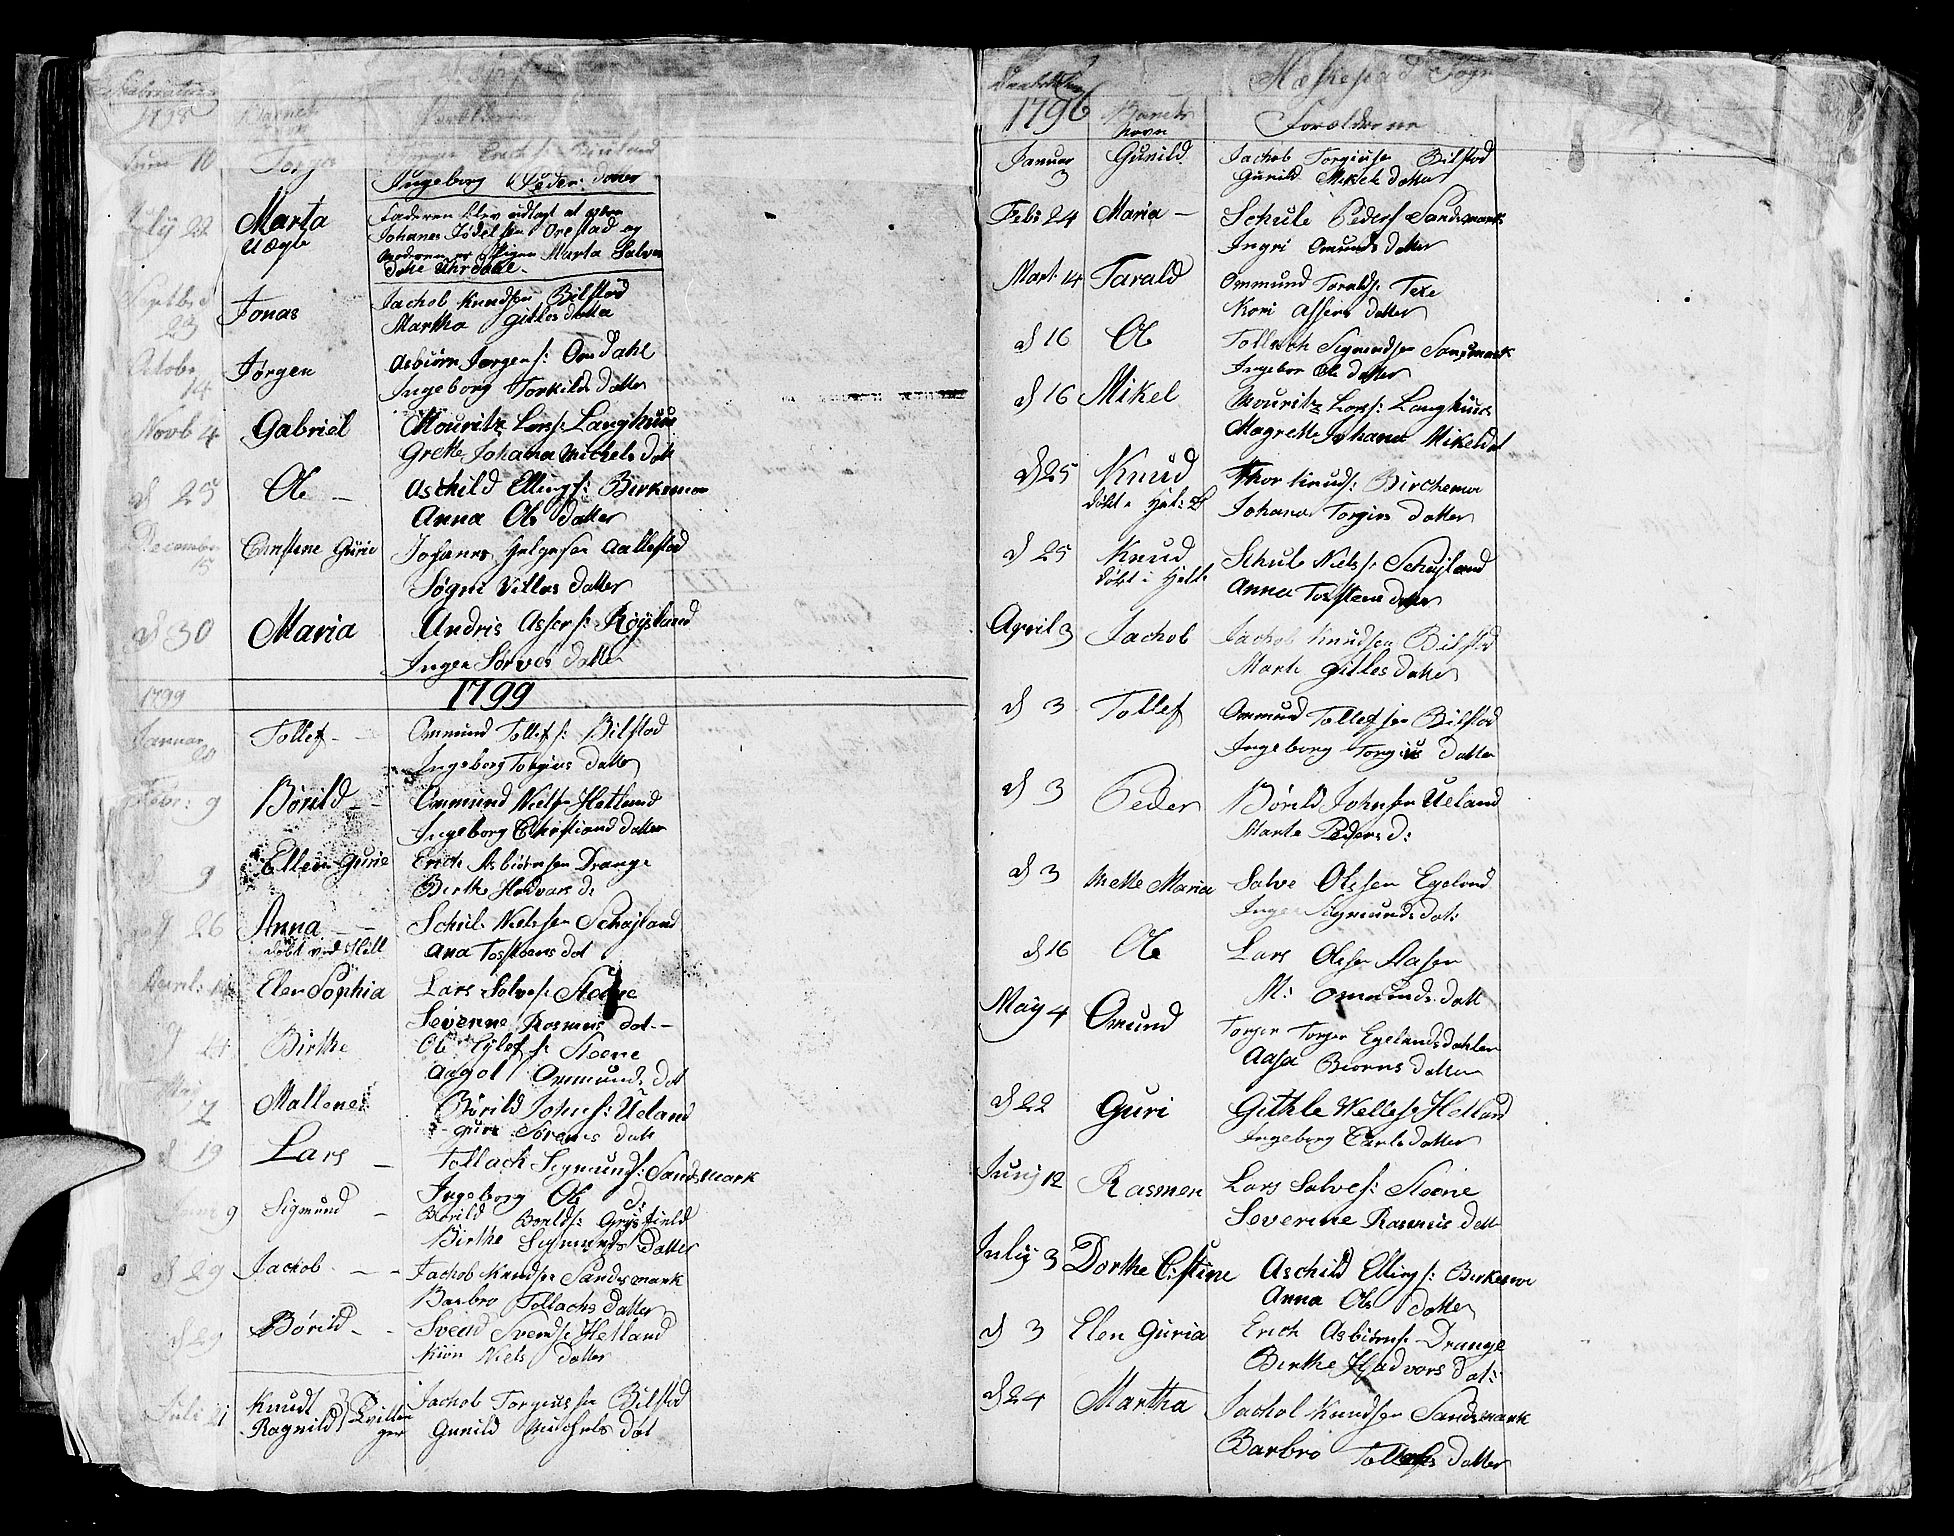 1798 Barnets
Juni 10 Torger Torger Erichs:
Ingeborg Peders datter
July 22 Marta Faderen blev udlagt at være
Uægte Johanes Jødelsen Orestad og
Moderen er Pigen Marta Salves
datte Uhrdahl.
Septbr d 23 Jonas Jachob Knudsen Bilstod
Martha Gitles datter
Octobr 14 Jörgen Asbiörn Jørgens: Omdahl
Ingeborg Torkilds datter
Novb 4 Gabriel Mouritz Lars: Langhuus
Grethe Johana Michels datt
d 25 Ole – Aschild Ellings: Birkemoe
Anna Ols datter
December 15 Christene Gurie Johanes Helgesen Aallestod
Søgni Villas datter
d 30 Maria Andris Assers: Röysland
Inger Sørves datter
1799 1799
Januar 20 Tollef – Ommund Tollefs: Bilstod
Ingeborg Torgius datter
Febr: 9 Børild – Ommund Nielsen Hetland
Ingeborg Christiand datter
d 9 Ellen Gurie Erich Asbiørnsen Drange
Birthe Hadvars d:
d 26 Anna – Schule Nielssen Schøjland
døbt ved Hell Ana Tosteens dot
Aprl: 14 Elen Sophia Lars Solves: Steene
Severine Rasmus dot –
d 21 Birthe Ole Eylefs: Steene
Aagot Ommunds dot
May 7 Mallene Børild Johns: Ueland
guri Sørens datt
d 19 Lars – Tollach Sigmunds: Sandsmark
Ingeborg Ole d:
Juni 9 Sigmund – Børild Borilds: Grysfield
Birthe Sigmunds datter
d 29 Jachob – – Jachob Knudsen Sandsmark
Barbro Tollachs datter
d 29 Børild – – Svend Svends: Hetland
Kiön Niels datter
Juli 21 Knudt Jachob Torgiussen Bilstod
Ragnild Tvillinger Gunild Michels dot
Sogn
1796 Barnets Navn Forældrene
Januar 3 Gunild Jachob Torgiusen Bilstod
Gunild Mikels datter
Feb: 24 Maria – Schule Peders Sandsmark
Ingri Omunds datter
Mart: 14 Tarald Ommund Toralds: Texe
Kari Assers datter
d 16 Ole Tollach Sigmundsen Sandsmark
Ingebor Ole datter
d 16 Mikel Mouritz Lars: Langhuus
Magrethe Johana Mikelsdat
d 25 Knud Thor Knuds: Birchemoe
døbt i Hel: L Johana Torgius datter
d 25 Knud Schule Niels: Schøjland
døbt i Hell: Anna Tosteens datter
April 3 Jachob Jachob Knudsen Bilstod
Marte Gitles datter
d 3 Tollef Ommund Tollefsen Bilstod
Ingeborg Torgius datter
d 3 Peder Børild Johnsen Ueland
Marte Peders d:
d 3 Mette Maria Salve Olssen Egeland
Inger Sigmunds dat:
d 16 Ole Lars Olssen Aasen
M: Omunds datt
May 4 Omund Torger Torger Egelandsdahlen
Aasa Biørns datter
d 22 Guri Githle Welles: Hetland
Ingeborg Carls datter
Junij 12 Rasmen Lars Salves: Steene
Severine Rasmus datt
July 3 Dorthe Cistine Aschild Ellings: Birkemoe
Anna Ole datter
d 3 Elen Guria Erich Asbiörns: Drange
Birthe Hadvors dat:
d 24 Martha Jachol Knudsen Sandsmark
Barbro Tollachs datter